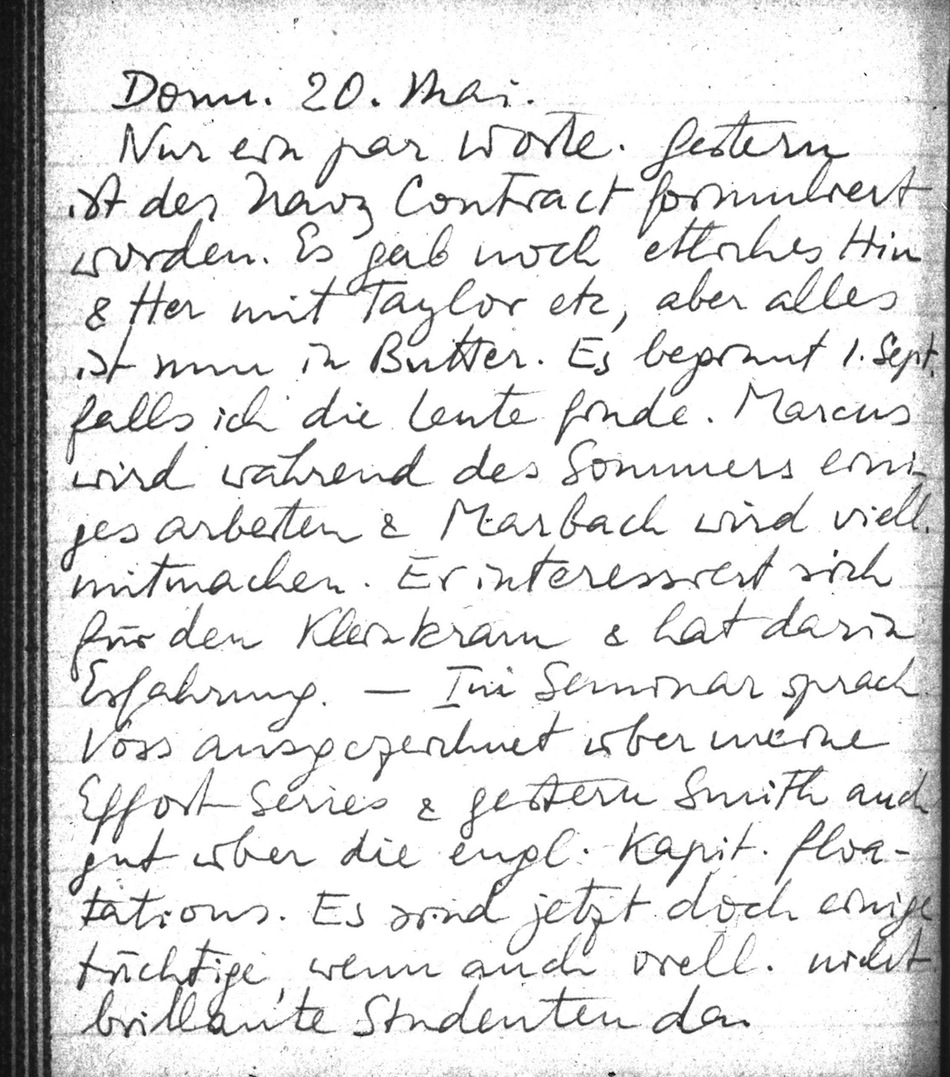 Donn. 20. Mai.
Nur ein par Worte. Gestern
ist der Navy Contract formuliert
worden. Es gab noch etliches Hin
& Her mit Taylor etc, aber alles
ist nun in Butter. Es beginnt 1. Sept.
falls ich die Leute finde. Marcus
wird während des Sommers eini-
ges arbeiten & Marbach wird viell.
mitmachen. Er interessiert sich
für den Kleinkram & hat darin
Erfahrung. — Im Seminar sprach
Voss ausgezeichnet über meine
Effort Series & gestern Smith auch
gut über die engl. Kapit. floa-
tations. Es sind jetzt doch einige
tüchtige, wenn auch viell. nicht
brillante Studenten da.